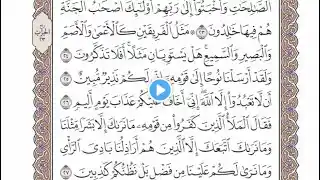 الصَّالِحَاتِ وَأَخْبَتُوا إِلَىٰ رَبِّهِمْ أُولَٰئِكَ أَصْحَابُ الْجَنَّةِ
هُمْ فِيهَا خَالِدُونَ ٢٣ مَثَلُ الْفَرِيقَيْنِ كَالْأَعْمَىٰ وَالْأَصَمِّ
وَالْبَصِيرِ وَالسَّمِيعِ هَلْ يَسْتَوِيَانِ مَثَلًا أَفَلَا تَذَكَّرُونَ ٢٤
وَلَقَدْ أَرْسَلْنَا نُوحًا إِلَىٰ قَوْمِهِ إِنِّي لَكُمْ نَذِيرٌ مُبِينٌ ٢٥
أَنْ لَا تَعْبُدُوا إِلَّا اللَّهَ إِنِّي أَخَافُ عَلَيْكُمْ عَذَابَ يَوْمٍ أَلِيمٍ ٢٦
فَقَالَ الْمَلَأُ الَّذِينَ كَفَرُوا مِنْ قَوْمِهِ مَا نَرَاكَ إِلَّا بَشَرًا مِثْلَنَا
وَمَا نَرَاكَ اتَّبَعَكَ إِلَّا الَّذِينَ هُمْ أَرَاذِلُنَا بَادِيَ الرَّأْيِ
وَمَا نَرَىٰ لَكُمْ عَلَيْنَا مِنْ فَضْلٍ بَلْ نَظُنُّكُمْ كَاذِبِينَ ٢٧